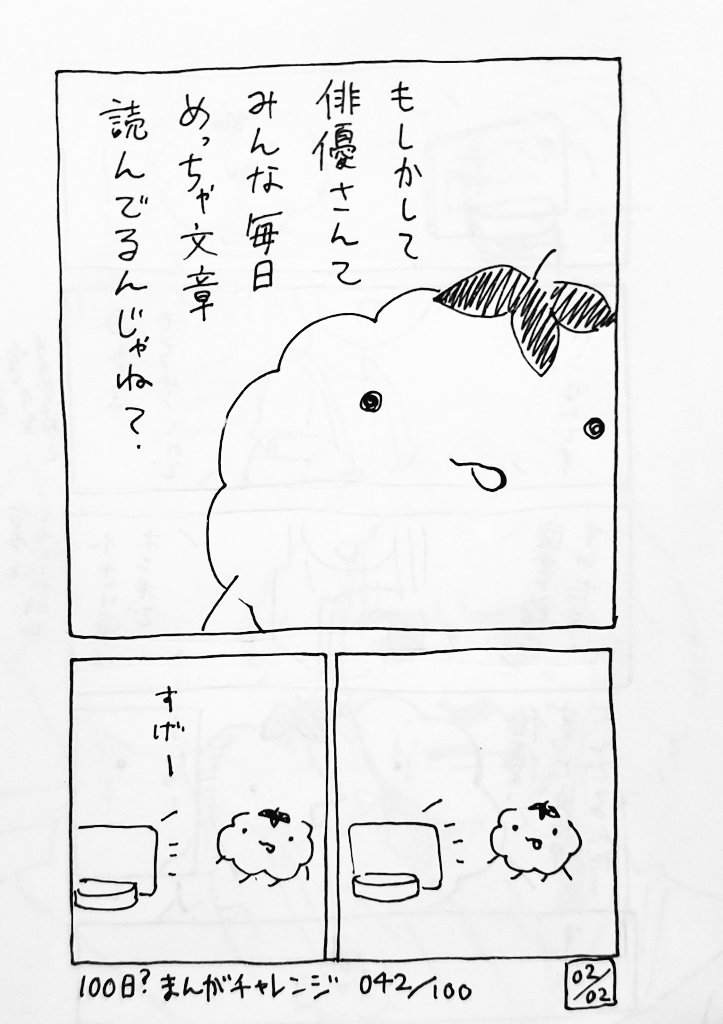 もしかして
俳優さんて
みんな毎日
めっちゃ文章
読んでるんじゃね？
すげー
100日？まんがチャレンジ 042/100
02/02